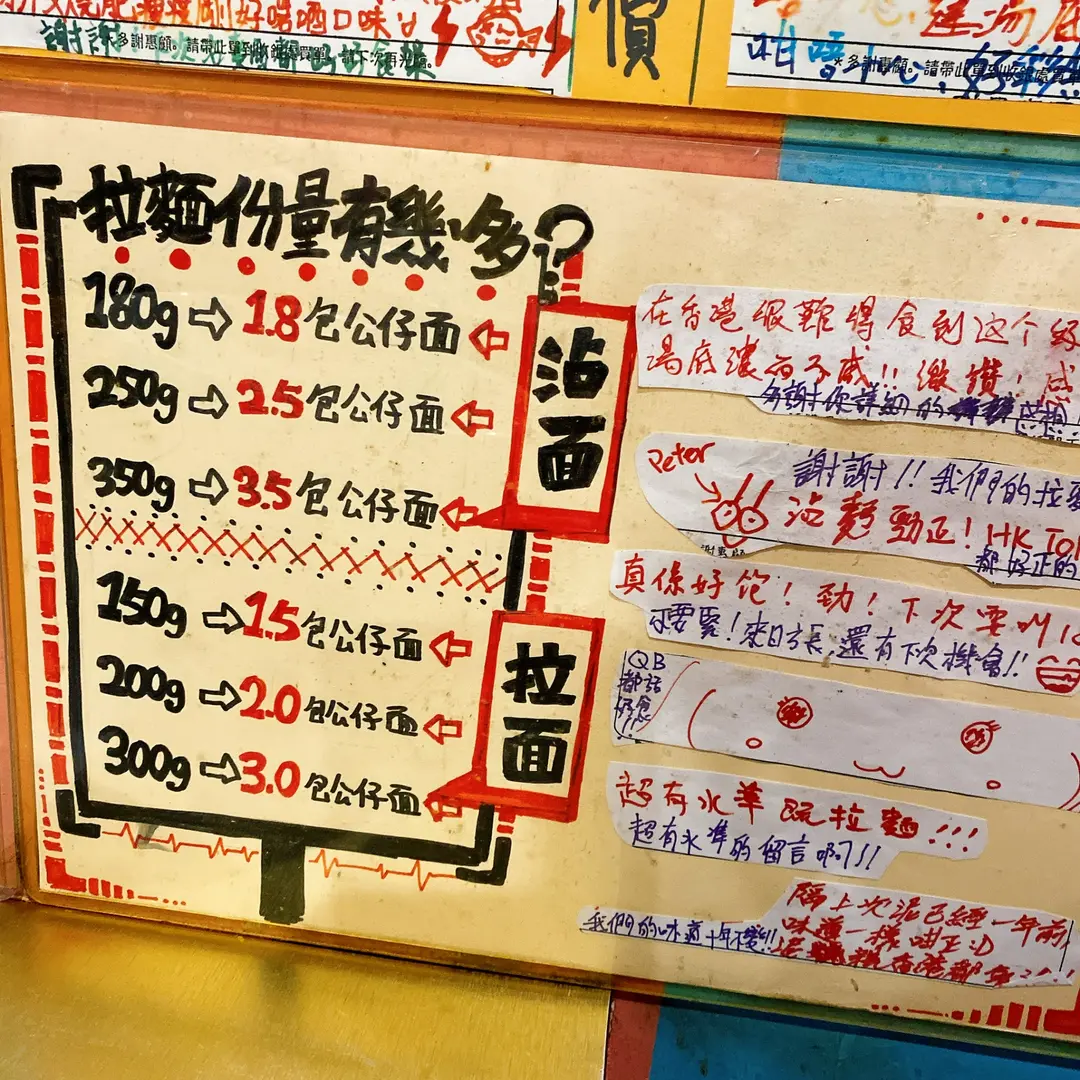 好啱晒口味
謝謝
*多謝惠顧。請帶此單到收銀處買單,請下次再光臨。
價
湯底
咁
*多謝惠顧。請帶此單到收銀處買
拉麵份量有幾多?
180g⇨1.8包公仔面
250g⇨2.5包公仔面
350g⇨3.5包公仔面
沾面
150g⇨1.5包公仔面
200g⇨2.0包公仔面
300g⇨3.0包公仔面
拉面
在香港很難得食到这个
湯底濃而不咸!!激讚!
多謝你詳細的
Peter
謝謝!!我們的拉
沾麵勁正!HK To
都好正的
真係好飽!勁!下次要叫
要緊!來日方長,還有下次機會!!
QB
都話
好食
!!
超有水準既拉麵!!!
超有水準的留言啊!!!
隔上次泥已經一年前
味道一樣咁正:D
我們的味道十年不變!!